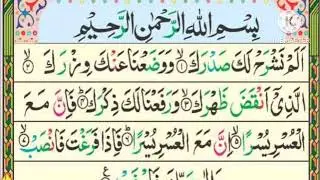 بِسْمِ اللّٰهِ الرَّحْمٰنِ الرَّحِيْمِ
اَلَمْ نَشْرَحْ لَكَ صَدْرَكَ ۙ۝۱ وَوَضَعْنَا عَنْكَ وِزْرَكَ ۙ۝۲
الَّذِيْٓ اَنْقَضَ ظَهْرَكَ ۙ۝۳ وَرَفَعْنَا لَكَ ذِكْرَكَ ؕ۝۴ فَاِنَّ مَعَ
الْعُسْرِ يُسْرًا ۙ۝۵ اِنَّ مَعَ الْعُسْرِ يُسْرًا ؕ۝۶ فَاِذَا فَرَغْتَ فَانْصَبْ ۙ۝۷